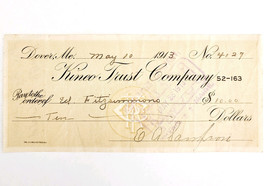 Dover, Me. May 10 1913 No. 4129
Kineo Trust Company 52-163
Pay to the order of Ed Fitzsimmons $10.00
Ten Dollars